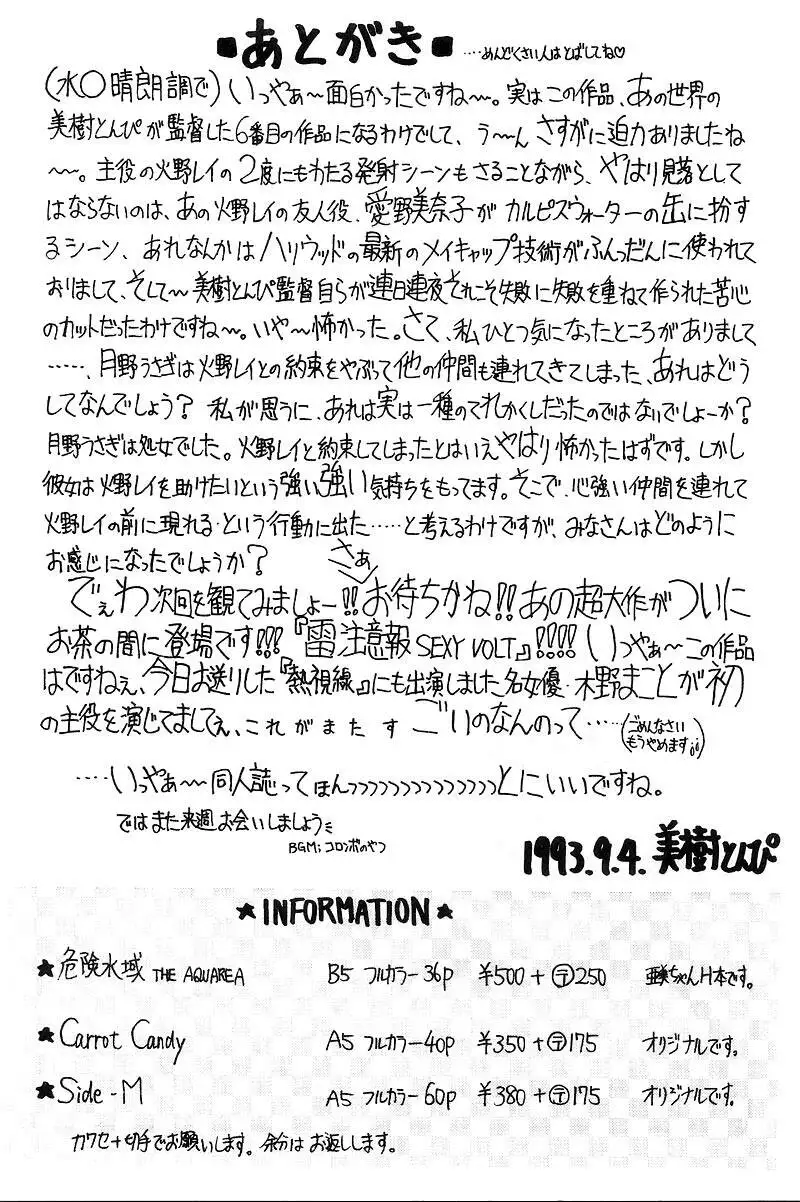 ■あとがき■ ‥‥めんどくさい人はとばしてね♡
(水○晴朗調で) いっやぁ〜面白かったですね〜。実はこの作品、あの世界の
美樹とんぴが監督した6番目の作品になるわけでして、う〜ん さすがに迫力ありましたね
〜〜。主役の火野レイの2度にもわたる発射シーンもさることながら、やはり見落として
はならないのは、あの火野レイの友人役、愛野美奈子がカルピスウォーターの缶に扮す
るシーン、あれなんかはハリウッドの最新のメイキャップ技術がふんだんに使われて
おりまして、そして〜美樹とんぴ監督自らが連日連夜それこそ失敗に失敗を重ねて作られた苦心
のカットだったわけですね〜。いや〜怖かった。さて、私ひとつ気になったところがありまして
‥‥‥、月野うさぎは火野レイとの約束をやぶって他の仲間も連れてきてしまった、あれはどう
してなんでしょう? 私が思うに、あれは実は一種のてれかくしだったのではないでしょーか?
月野うさぎは処女でした。火野レイと約束してしまったとはいえやはり怖かったはずです。しかし
彼女は火野レイを助けたいという強い、強い気持ちをもってます。そこで、心強い仲間を連れて
火野レイの前に現れる・という行動に出た‥‥‥と考えるわけですが、みなさんはどのように
お感じになったでしょうか?
さぁ
でぇわ次回を観てみましょー!!お待ちかね!!あの超大作がついに
お茶の間に登場です!!!『雷注意報 SEXY VOLT』!!!!いっやぁ〜この作品
はですねぇ、今日お送りした『熱視線』にも出演しました名女優・木野まことが初
の主役を演じてましてぇ、これがまたすごいのなんのって‥‥‥(ごめんなさいもうやめます;;)
‥‥いっやぁ〜同人誌ってほんっっっっっっっっっっっっっとにいいですね。
ではまた来週お会いしましょう
BGM; コロンボのやつ
1993.9.4. 美樹とんぴ
★INFORMATION★
★危険水域 THE AQUAREA B5 フルカラー36p ¥500+〒250 亜美ちゃんH本です。
★Carrot Candy A5 フルカラー40p ¥350+〒175 オリジナルです。
★Side-M A5 フルカラー60p ¥380+〒175 オリジナルです。
カワセ+切手でお願いします。余分はお返しします。